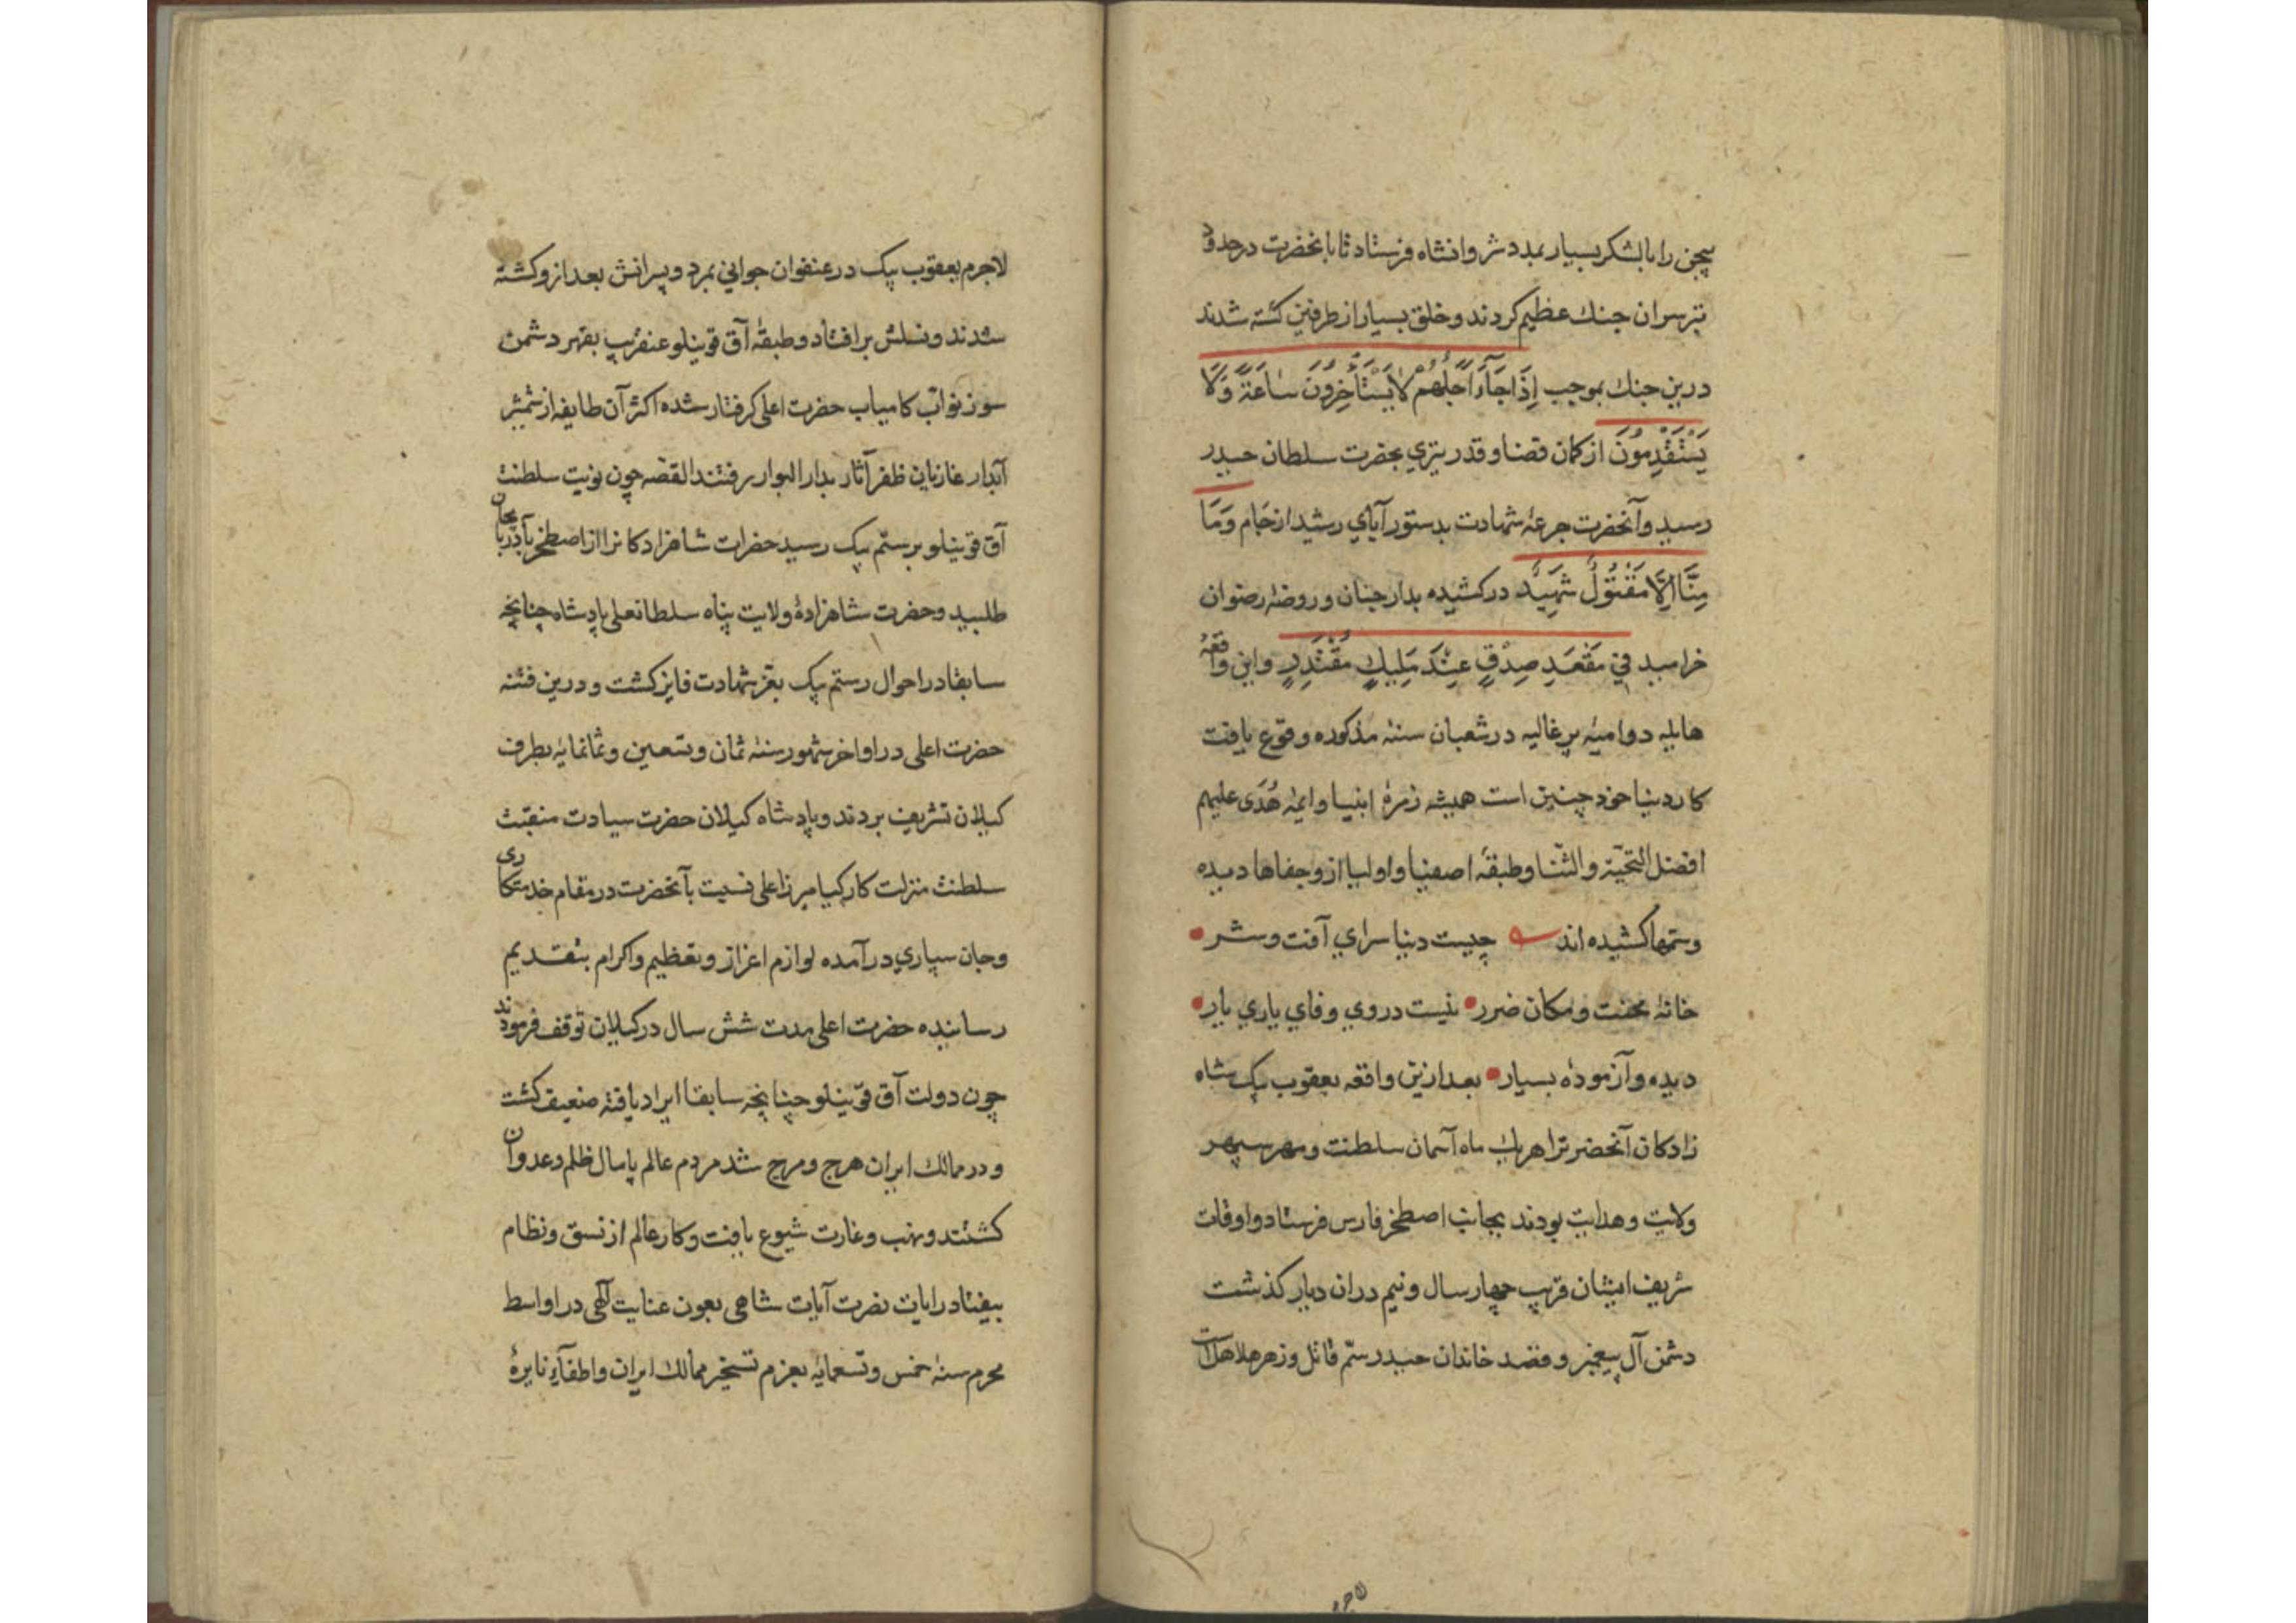 بیجن را با لشکر بسیار بمدد شروانشاه فرستاد تا با نحضرت در حدود
تبرسران جنك عظیم کردند و خلق بسیار از طرفین کشته شدند
درین جنك بموجب اِذَا جَآءَ اَجَلُهُمْ لَا یَسْتَأْخِرُونَ سَاعَةً وَلَا
یَسْتَقْدِمُونَ از کمان قضا و قدر تیری بحضرت سلطان حیدر
رسید و آنحضرت جرعهٔ شهادت بدستور آبای رشید از جام وَمَا
مِنَّا اِلَّا مَقْتُولٌ شَهِیدٌ درکشیده بدار جنان و روضهٔ رضوان
خرامید فی مَقْعَدِ صِدْقٍ عِنْدَ مَلِیكٍ مُقْتَدِرٍ و این واقعهٔ
هایله دوامیهٔ پر غالیه در شعبان سنهٔ مذکوره وقوع یافت
کار دنیا خود چنین است همیشه زمرهٔ انبیا و ایمهٔ هُدَی علیهم
افضل التحیّة والثّنا وطبقهٔ اصفیا و اولیا ازو جفاها دیده
و ستمها کشیده اند چیست دنیا سرای آفت و شر
خانهٔ محنت و مکان ضرر نیست در وی وفای یاری یار
دیده و آزموده بسیار بعد ازین واقعه یعقوب بیک شاه
زادکان آنحضرترا هریك ماه آسمان سلطنت و مهر سپهر
ولایت و هدایت بودند بجانب اصطخر فارس فرستاد و اوقات
شریف ایشان قریب چهار سال و نیم دران دیار کذشت
دشمن آل پیغمبر و قصد خاندان حیدر ستم قاتل و زهر هلاهل است
لاجرم یعقوب بیک در عنفوان جوانی بمرد و پسرانش بعد ازو کشته
شدند و نسلش برافتاد و طبقهٔ آق قوینلو عنقریب بقهر دشمن
سوز نوّاب کامیاب حضرت اعلی کرفتار شده اکثر آن طایفه از شمشیر
آبدار غازیان ظفر آثار بدار البوار رفتند القصه چون نوبت سلطنت
آق قوینلو برستم بیک رسید حضرات شاهزادکانرا از اصطخر بآذربایجان
طلبید و حضرت شاهزادهٔ ولایت پناه سلطانعلی پادشاه چنانچه
سابقا در احوال رستم بیک بعزّ شهادت فایز کشت و درین فتنه
حضرت اعلی در اواخر شهور سنهٔ ثمان و تسعین و ثمانمایه بطرف
کیلان تشریف بردند و پادشاه کیلان حضرت سیادت منقبت
سلطنت منزلت کارکیا میرزا علی نسبت بآنحضرت در مقام خدمتکاری
و جان سپاری درآمده لوازم اعزاز و تعظیم و اکرام بتقدیم
رسانیده حضرت اعلی مدت شش سال در کیلان توقف فرمودند
چون دولت آق قوینلو چنانچه سابقا ایراد یافته ضعیف کشت
و در ممالك ایران هرج و مرج شد مردم عالم پامال ظلم و عدوان
کشتند و نهب و غارت شیوع یافت و کار عالم از نسق و نظام
بیفتاد رایات نصرت آیات شاهی بعون عنایت آلهی در اواسط
محرم سنهٔ خمس و تسعمایه بعزم تسخیر ممالك ایران و اطفآءِ نایرهٔ